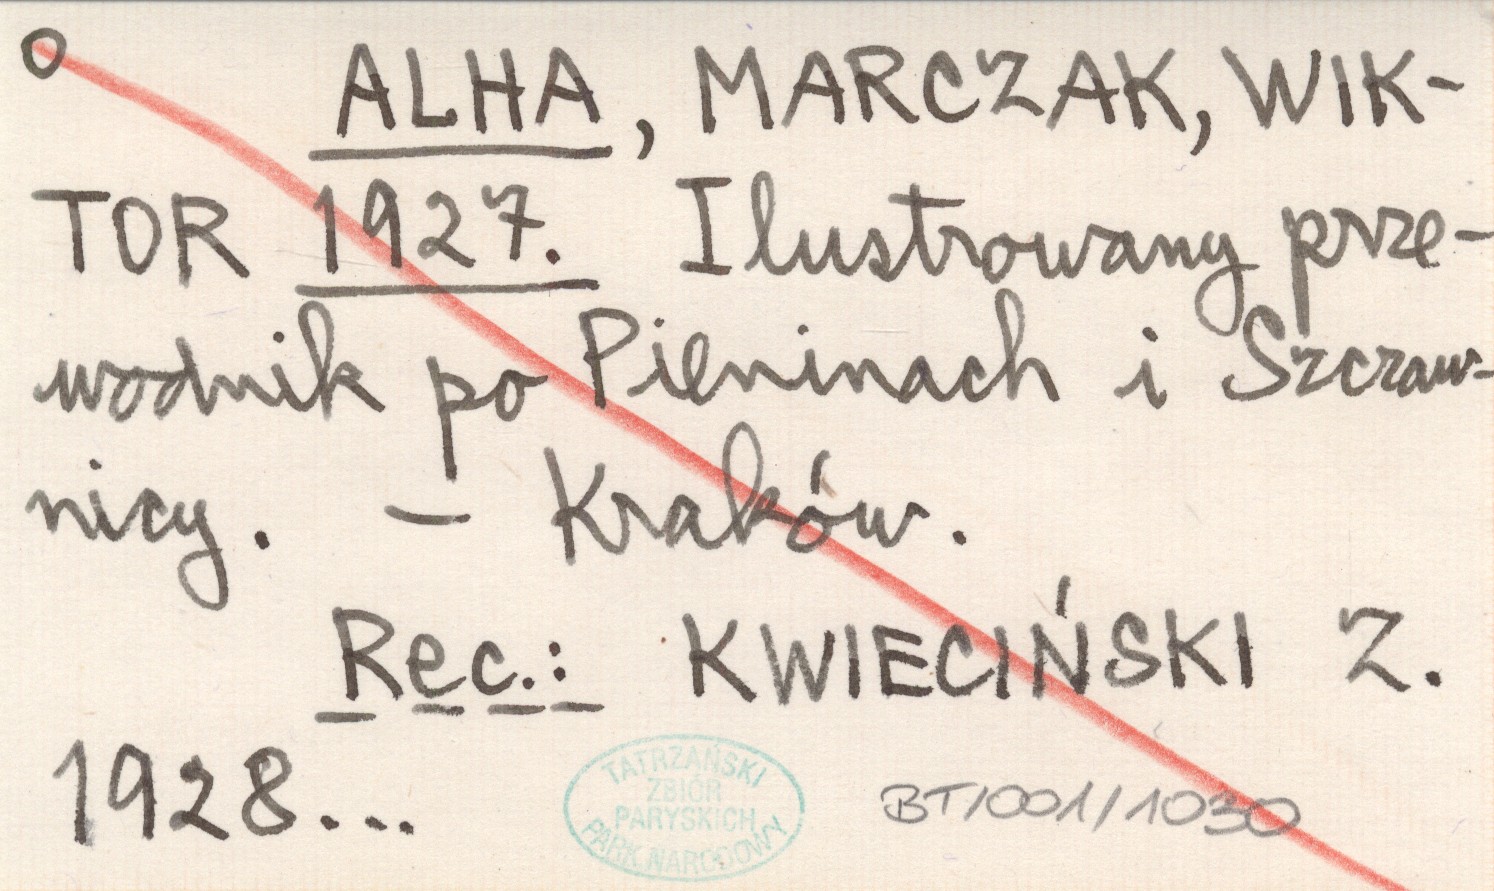 ALHA, MARCZAK, WIK-
TOR 1927. Ilustrowany prze-
wodnik po Pieninach i Szczaw-
nicy. – Kraków.
Rec.: KWIECIŃSKI Z.
1928...
TATRZAŃSKI
ZBIÓR
PARYSKICH
PARK NARODOWY
BT/001/1030